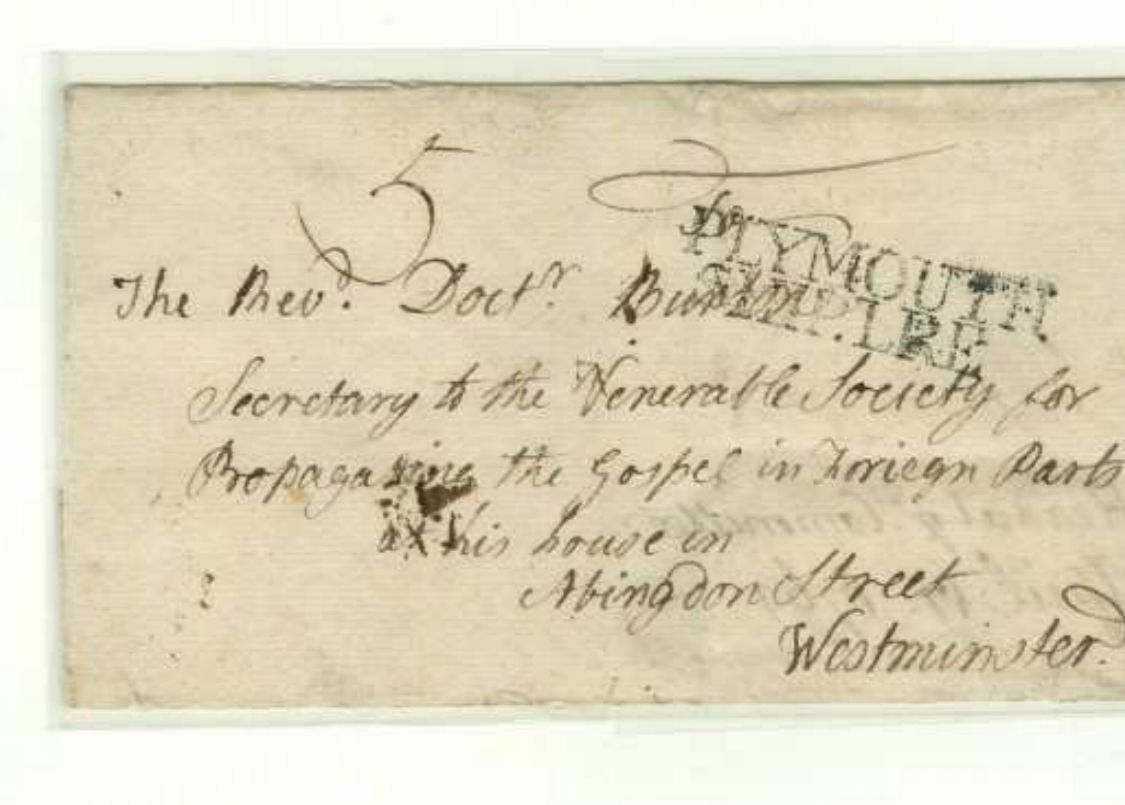 5
PLYMOUTH
SHIP.LRE
The Revd. Doctr. Burton
Secretary to the Venerable Society for
Propagating the Gospel in Foriegn Parts
at his house in
Abingdon Street
Westminster.